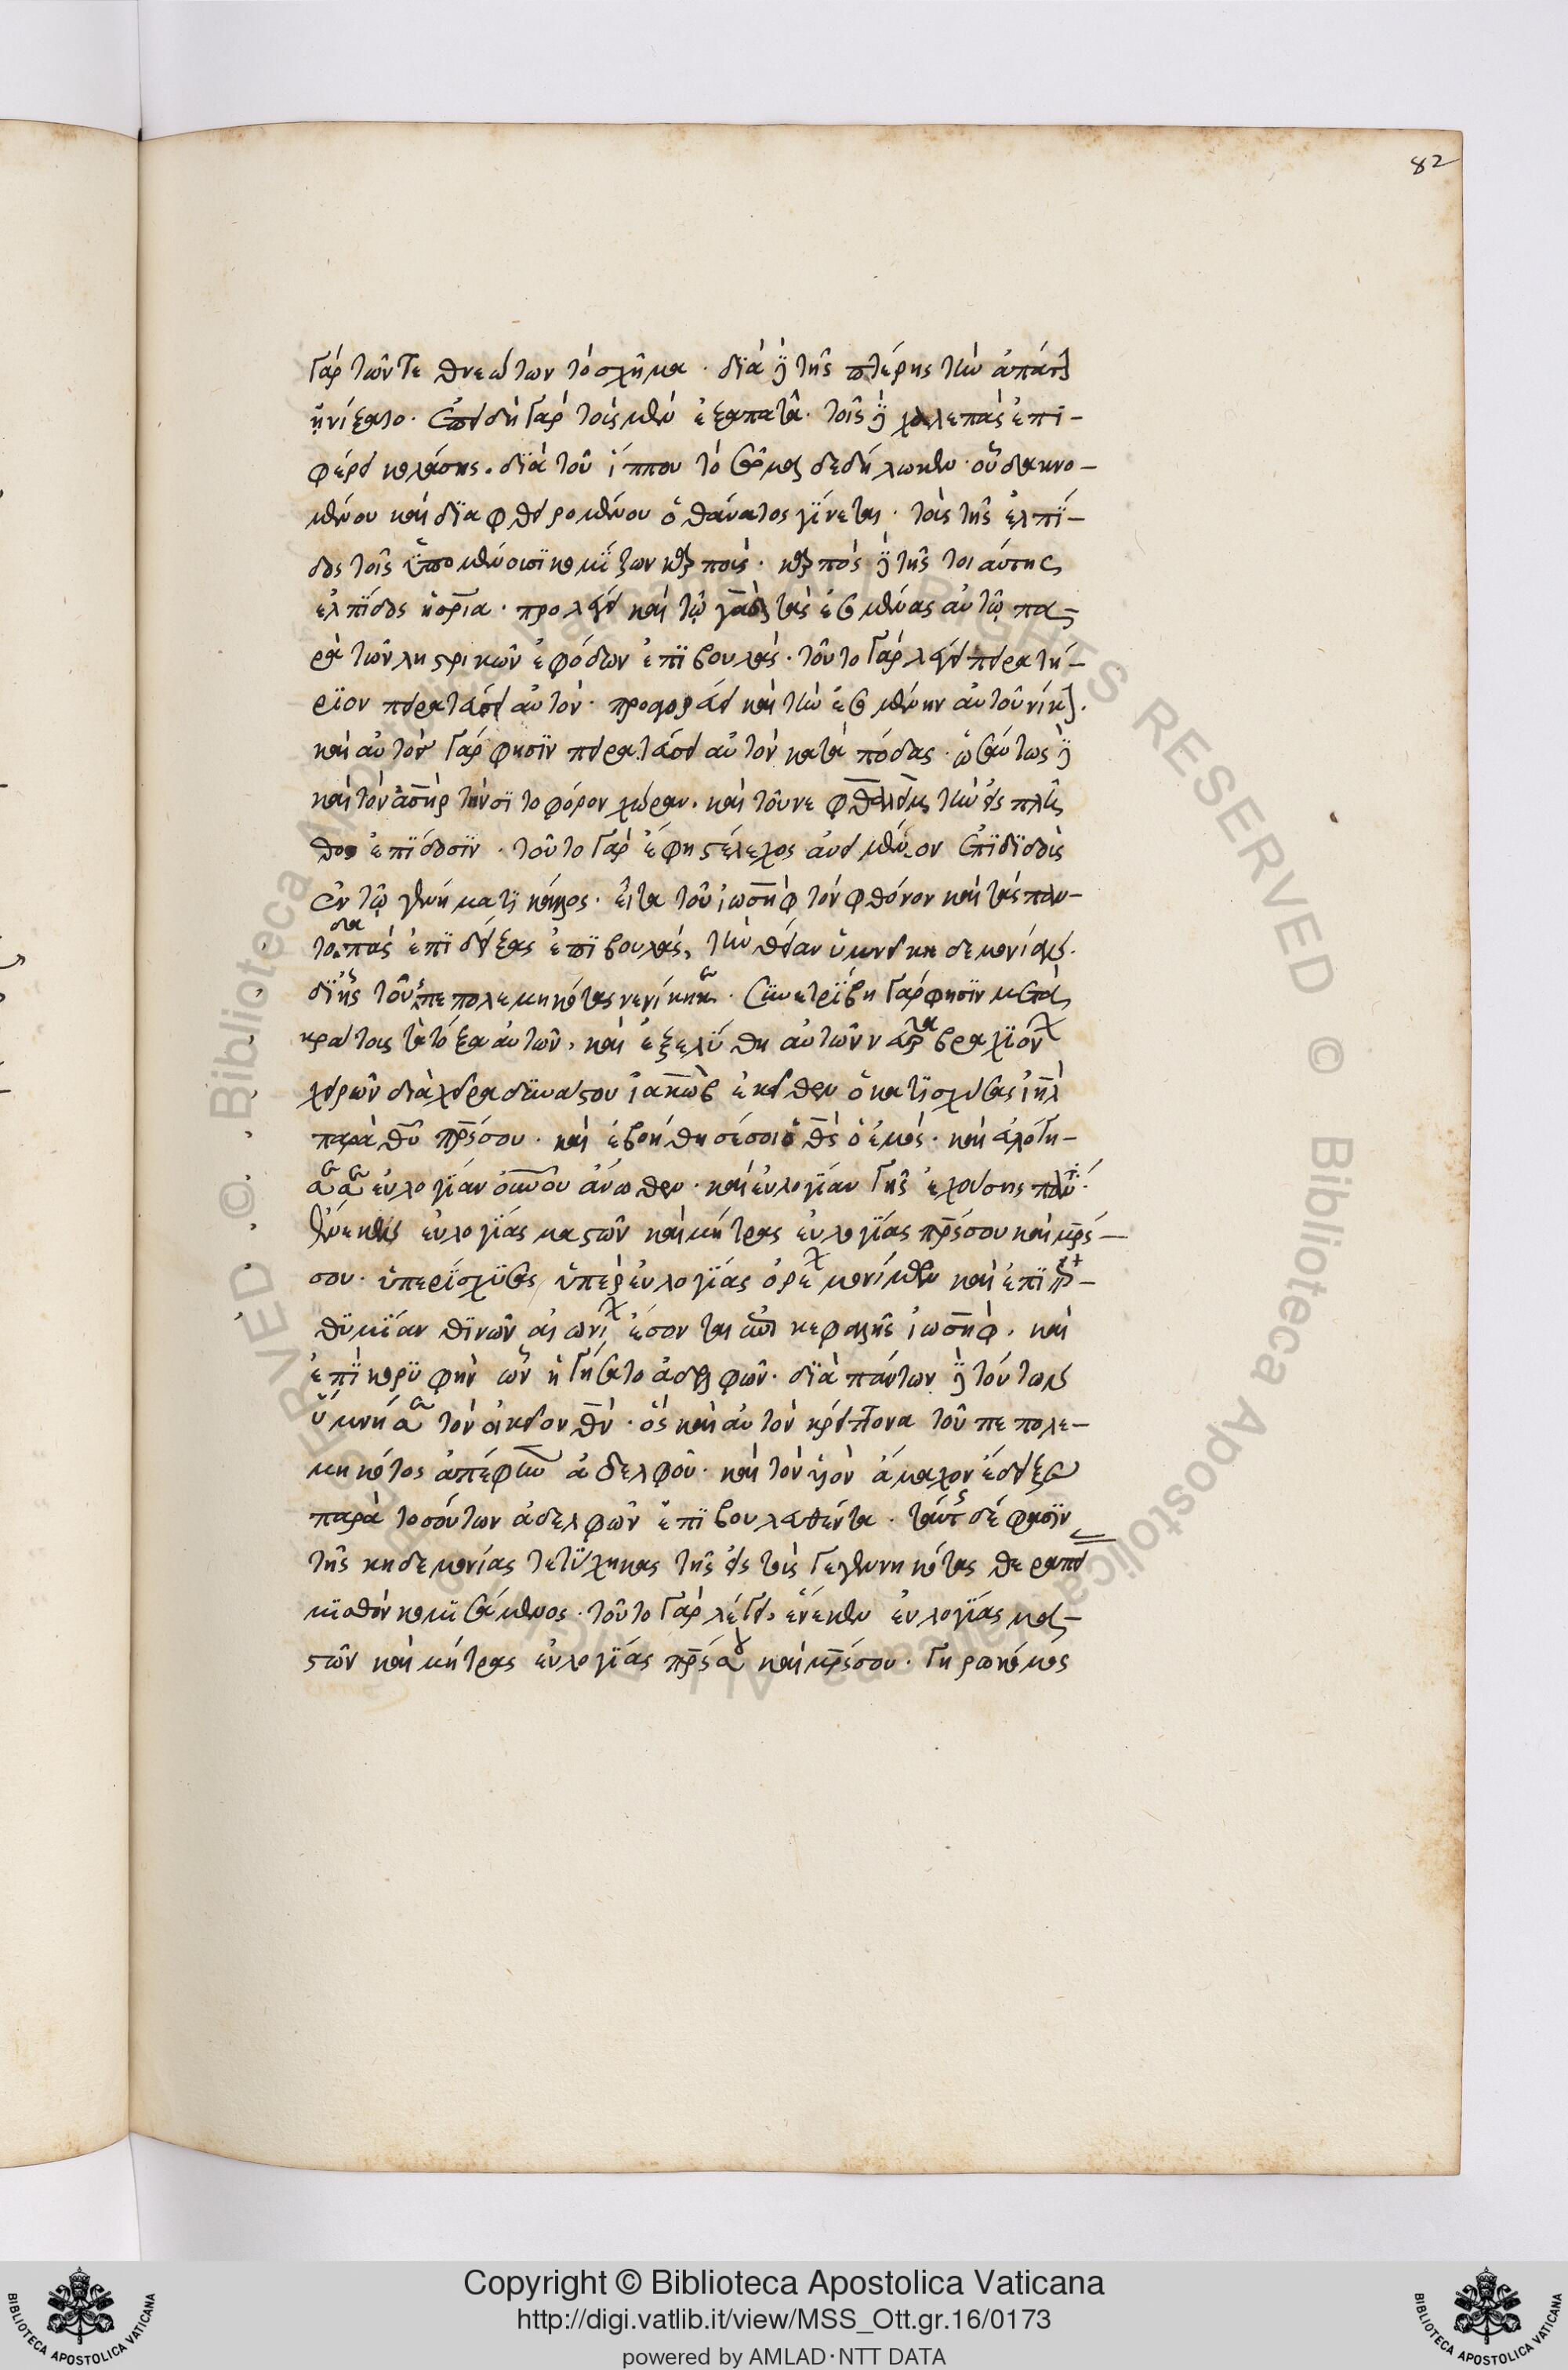 82
γὰρ τῶν τεθνεώτων τὸ σχῆμα · διὰ δὲ τῆς πτέρνης τὴν ἀπάτην
ᾐνίξατο · ἐπειδὴ γὰρ τοῖς μὲν ἐξαπατᾶ · τοῖς δὲ χαλεπὰς ἐπι-
φέρει κολάσεις · διὰ τοῦ ἵππου τὸ σῶμα δεδήλωκεν · οὗ δακνο-
μένου καὶ διαφθειρομένου ὁ θάνατος γίνεται · τὰς τῆς ἐλπί-
δος τοῖς ὑπομένουσι κομίζων καρπούς · καρπὸς δὲ τῆς τοιαύτης
ἐλπίδος ἡ σρία · προλέγει καὶ τῷ γὰδ τὰς ἐσομένας αὐτῷ πα-
ρὰ τῶν ληστρικῶν ἐφόδων ἐπιβουλάς · τοῦτο γὰρ λέγει πειρατή-
ριον πειρατεύσει αὐτόν · προαγορεύει καὶ τὴν ἐσομένην αὐτοῦ νίκην ·
καὶ αὐτὸς γὰρ φησὶν πειρατεύσει αὐτὸν κατὰ πόδας · ὡσαύτως δὲ
καὶ τὸν ἀσὴρ τὴν σιτοφόρον χώραν · καὶ τοῦ νεφθαλεὶμ τὴν εἰς πλῆ
θος ἐπίδοσιν · τοῦτο γὰρ ἔφη στέλεχος ἀνειμένον ἐπιδιδοὺς
ἐν τῷ γεννήματι κάλλος · εἶτα τοῦ ἰωσὴφ τὸν φθόνον καὶ τὰς παν-
τοδαπὰς ἐπιδείξας ἐπιβουλάς, τὴν θείαν ὑμνεῖ κηδεμονίαν ·
δι' ἧς τοὺς πεπολεμηκότας νενίκηκε · συνετρίβη γὰρ φησὶν μετὰ
κράτους τὰ τόξα αὐτῶν, καὶ ἐξελύθη αὐτῶν νεῦρα βραχιόνων
χειρῶν διὰ χεῖρα δυνάστου ἰακὼβ ἐκεῖθεν ὁ κατισχύσας ἰηλ
παρὰ θυ πρς σου · καὶ ἐβοήθησέ σοι ὁ θς ὁ ἐμὸς · καὶ εὐλόγη-
σε σε εὐλογίαν οὐνοῦ ἄνωθεν · καὶ εὐλογίαν γῆς ἐχούσης πάντα ·
ἕνεκεν εὐλογίας μαστῶν καὶ μήτρας εὐλογίας πρς σου καὶ μρς
σου · ὑπερίσχυσεν ὑπὲρ εὐλογίας ὀρέων μονίμων καὶ ἐπι-
θυμίαν θινῶν αἰωνίων ἔσονται ἐπὶ κεφαλῆς ἰωσὴφ · καὶ
ἐπὶ κορυφὴν ὧν ἡγήσατο ἀδελφῶν · διὰ πάντων δὲ τούτων
ὕμνησε τὸν οἰκεῖον θν · ὃς καὶ αὐτὸν κρείττονα τοῦ πεπολε-
μηκότος ἀπέφηνεν ἀδελφοῦ · καὶ τὸν υἱὸν ἄμαχον ἔδειξεν
παρὰ τοσούτων ἀδελφῶν ἐπιβουλευθέντα · ταύτης δέ φησιν
τῆς κηδεμονίας τετύχηκας τῆς εἰς τοὺς γεγεννηκότας θεραπεί
μισθὸν κομισάμενος · τοῦτο γὰρ λέγει, ἕνεκεν εὐλογίας μα-
στῶν καὶ μήτρας εὐλογίας πρς σου καὶ μρς σου · γηροκόμος
Copyright © Biblioteca Apostolica Vaticana
http://digi.vatlib.it/view/MSS_Ott.gr.16/0173
powered by AMLAD·NTT DATA